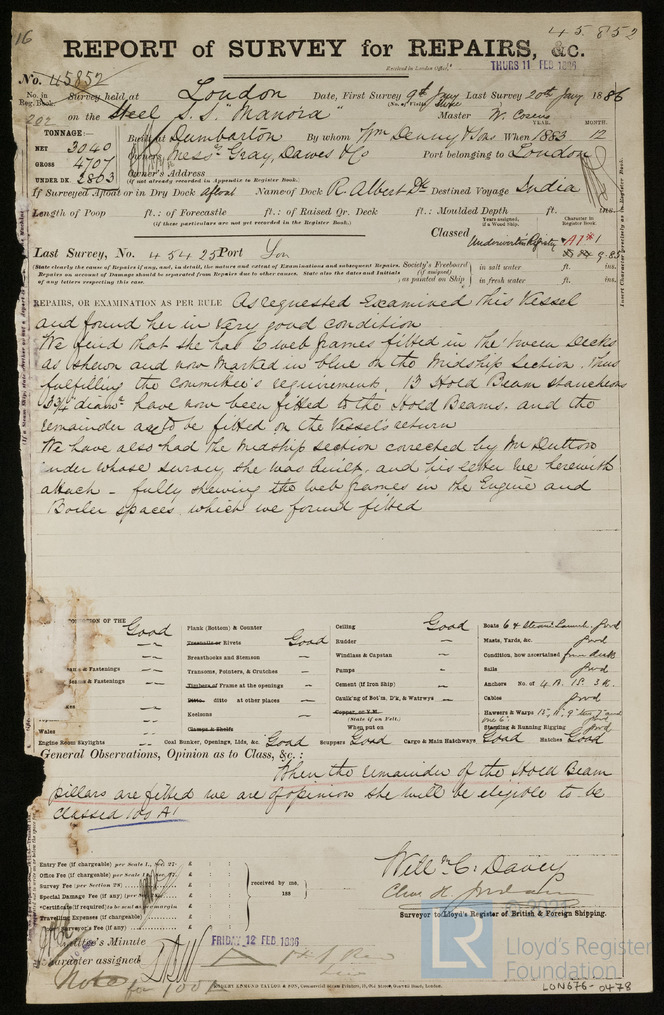 16
45852
REPORT of SURVEY for REPAIRS, &c.
Received in London Office,
THURS 11 FEB 1886
No. 45852
No. in Reg. Book. Survey held at London Date, First Survey 9th Jany Last Survey 20th Jany 1886
202 on the Steel S.S. "Manora" Master W. Cosens
TONNAGE: YEAR. MONTH.
NET 3040 Built at Dumbarton By whom Wm Denny & Sons When 1883 12
GROSS 4707 Owners Messrs Gray, Dawes & Co Port belonging to London
UNDER DK 2863 Owner's Address
(if not already recorded in Appendix to Register Book.)
If Surveyed Afloat or in Dry Dock Afloat Name of Dock R. Albert Dk Destined Voyage India
Length of Poop ft.: of Forecastle ft.: of Raised Qr. Deck ft.: Moulded Depth ft. ins.
(if these particulars are not yet recorded in the Register Book.)
Years assigned, if a Wood Ship. Character in Register Book.
Classed Underwriters Registry A1*1
9.85
Last Survey, No. 45425 Port Lon
(State clearly the cause of Repairs if any, and, in detail, the nature and extent of Examinations and subsequent Repairs.
Repairs on account of Damage should be separated from Repairs due to other causes. State also the dates and Initials
of any letters respecting this case.
Society's Freeboard (if assigned) as painted on Ship in salt water ft. ins.
in fresh water ft. ins.
REPAIRS, OR EXAMINATION AS PER RULE As requested Examined this Vessel
and found her in very good condition
We find that she has 6 web frames fitted in the tween Decks
as shewn and now marked in blue on the Midship Section. thus
fulfilling the committee's requirement. 13 Hold Beam stancheons
3 3/4 diamr have now been fitted to the Hold Beams. and the
remainder are to be fitted on the Vessel's return
We have also had the Midship Section corected by Mr Dutton
under whose survey she was built, and his letter we herewith
attach - fully shewing the web frames in the Engine and
Boiler spaces which we found fitted
CONDITION OF THE Good Plank (Bottom) & Counter Ceiling Good Boats 6 & Steam Launch. good
Treenails or Rivets Good Rudder Masts, Yards, &c. good
Breasthooks and Stemson Windlass & Capstan Condition, how ascertained from decks
& Fastenings Transoms, Pointers, & Crutches Pumps Sails good
& Fastenings Timbers of Frame at the openings Cement (if Iron Ship) Anchors No. of 4 B. 1 S. 3 K.
Ditto. ditto at other places Caulk'ng of Bot'm, D'k, & Watrwys Cables good
Keelsons Copper, or Y.M. (State if on Felt.) Hawsers & Warps
Wales Clamps & Shelfs When put on Standing & Running Rigging good
Engine Room Skylights Coal Bunker, Openings, Lids, &c. Good Scuppers Good Cargo & Main Hatchways Good Hatches Good
General Observations, Opinion as to Class, &c.:
When the remainder of the Hold Beam
pillars are fitted we are of opinion she will be eligible to be
classed 100 A1
Entry Fee (if chargeable) per Scale I., Sec. 27. £ : :
Office Fee (if chargeable) per Scale £ : :
Survey Fee (per Section 28) £ : :
Special Damage Fee (if any) £ : :
*Certificate (if required) £ : :
Travelling Expenses (if chargeable) £ : :
Surveyor's Fee (if any) £ : :
received by me, 188
Willm C. Davey
Surveyor to Lloyd's Register of British & Foreign Shipping.
Committee's Minute FRIDAY 12 FEB 1886
Character assigned
Note for 100A
© 2021
LR
Lloyd's Register
Foundation
LON676-0478